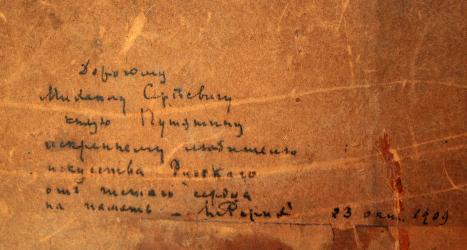 Дорогому
Михаилу Сергѣевичу
князю Путятину
искреннему любителю
искусства Русскаго
отъ чистаго сердца
на память – Н Рерих 23 окт. 1909